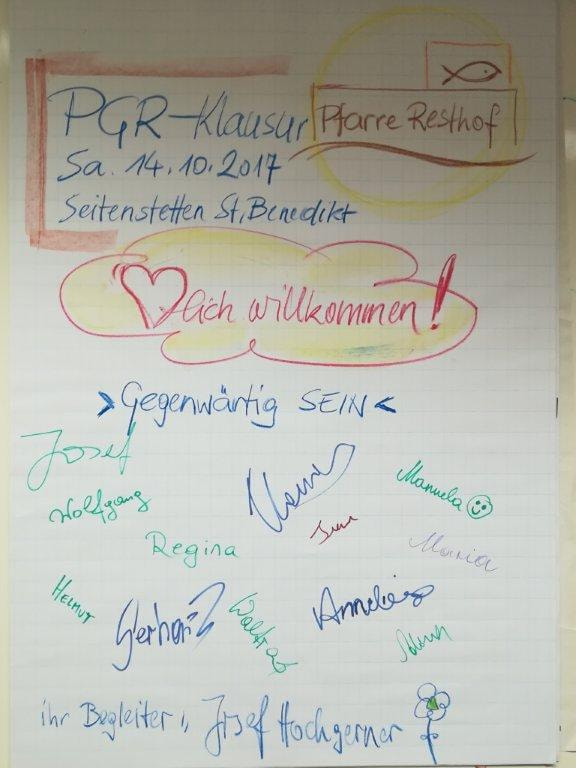 PGR-Klausur
Pfarre Resthof
Sa. 14.10.2017
Seitenstetten St. Benedikt
lich willkommen!
>Gegenwärtig SEIN<
Josef
Manuela
Wolfgang
Regina
Maria
Helmut
Gerhard
Waltraud
Annelies
ihr Begleiter, Josef Hochgerner